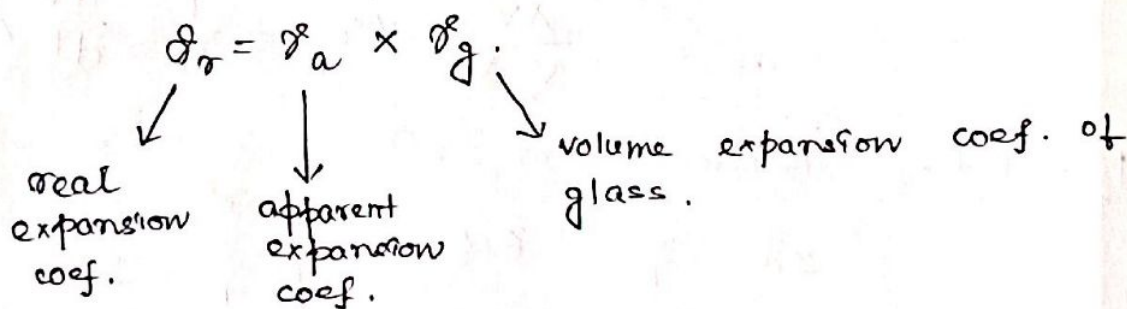 γr = γa × γg.
real expansion coef.
apparent expansion coef.
volume expansion coef. of glass.